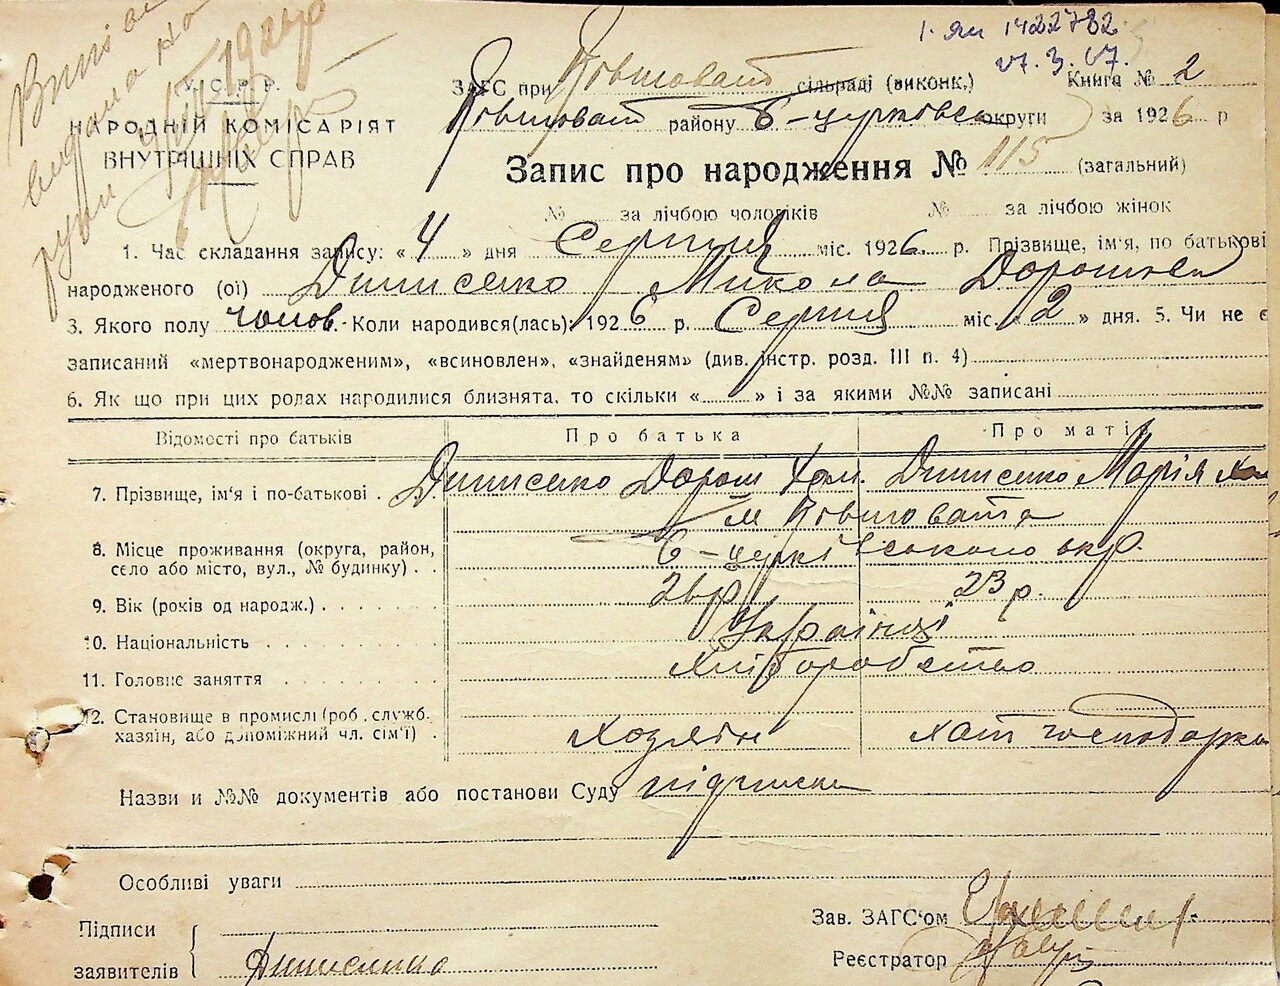 І-ЯИ 1422782
27.3.47.
У.С.Р.Р.
НАРОДНІЙ КОМІСАРІЯТ
ВНУТРІШНІХ СПРАВ
ЗАГС при Ковшоват сільраді (виконк.) Книга № 2
Ковшоват району Б-церковськ округи за 1926 р
Запис про народження № 115 (загальний)
№ за лічбою чоловіків № за лічбою жінок
1. Час складання запису: «4» дня Серпня міс. 1926 р. Прізвище, ім'я, по батькові
народженого (ої) Дишсенко Микола Дорошев
3. Якого полу чолов. Коли народився(лась): 1926 р. Серпня міс. «2» дня. 5. Чи не є
записаний «мертвонародженим», «всиновлен», «знайденям» (див. інстр. розд. III п. 4)
6. Як що при цих родах народилися близнята, то скільки « » і за якими №№ записані
Відомості про батьків Про батька Про матір
7. Прізвище, ім'я і по-батькові . Денисенко Дорош Хом. Денисенко Марія
м Ковшовата
8. Місце проживання (округа, район,
село або місто, вул., № будинку) . . Б-церківського окр.
9. Вік (років од народж.) 26р 23 р.
10. Національність Українці
11. Головне заняття хліборобство
12. Становище в промислі (роб. служб.
хазяїн, або допоміжний чл. сім'ї) . хозяїн хатн господарка
Назви и №№ документів або постанови Суду підписка
Особливі уваги
Підписи
заявителів Денисенко
Зав. ЗАГС'ом
Реєстратор